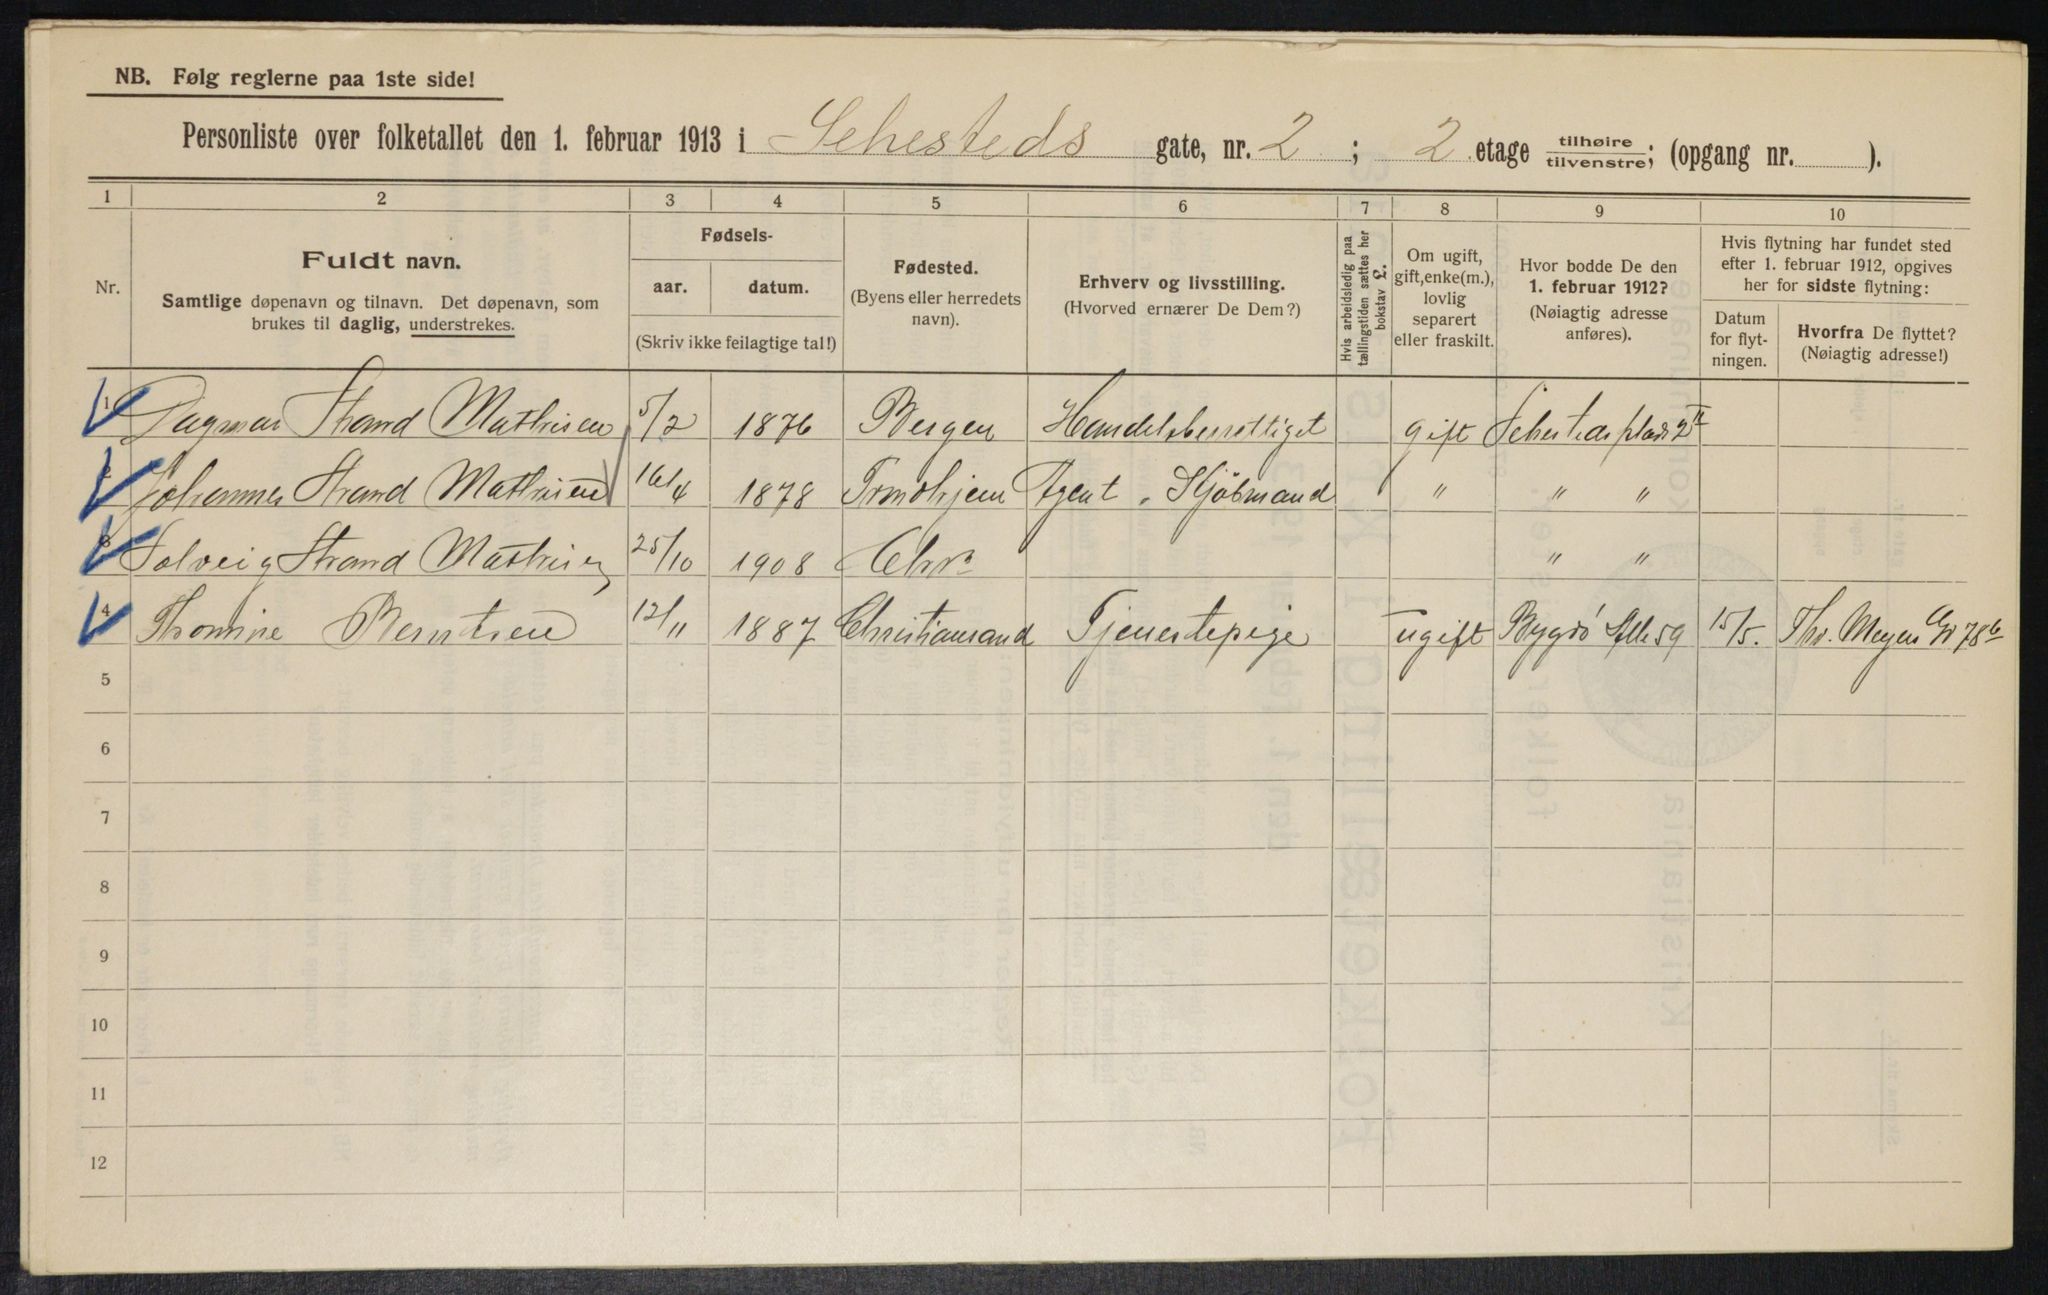 NB. Følg reglerne paa 1ste side!
Personliste over folketallet den 1. februar 1913 i Sehesteds gate, nr. 2 ; 2 etage tilhøire/tilvenstre; (opgang nr. ).
1 2 3 4 5 6 7 8 9 10
Nr.
Fuldt navn.
Samtlige døpenavn og tilnavn. Det døpenavn, som
brukes til daglig, understrekes.
Fødsels-
aar. datum.
(Skriv ikke feilagtige tal!)
Fødested.
(Byens eller herredets
navn).
Erhverv og livsstilling.
(Hvorved ernærer De Dem?)
Hvis arbeidsledig paa
tællingstiden sættes her
bokstav £.
Om ugift,
gift, enke(m.),
lovlig
separert
eller fraskilt.
Hvor bodde De den
1. februar 1912?
(Nøiagtig adresse
anføres).
Hvis flytning har fundet sted
efter 1. februar 1912, opgives
her for sidste flytning:
Datum
for flyt-
ningen.
Hvorfra De flyttet?
(Nøiagtig adresse!)
1 Dagmar Strand Mathisen 5/2 1876 Bergen Handelsberettiget gift Sehesteds plads 2
2 Johannes Strand Mathisen 16/4 1878 Trondhjem Agent . Kjøbmand " " "
3 Solveig Strand Mathisen 25/10 1908 Chra " "
4 Thomine Berntsen 12/11 1887 Christiansand Tjenestepige ugift Bygdö Alle 59 15/5. Thv. Meyers Gt 78b
5
6
7
8
9
10
11
12